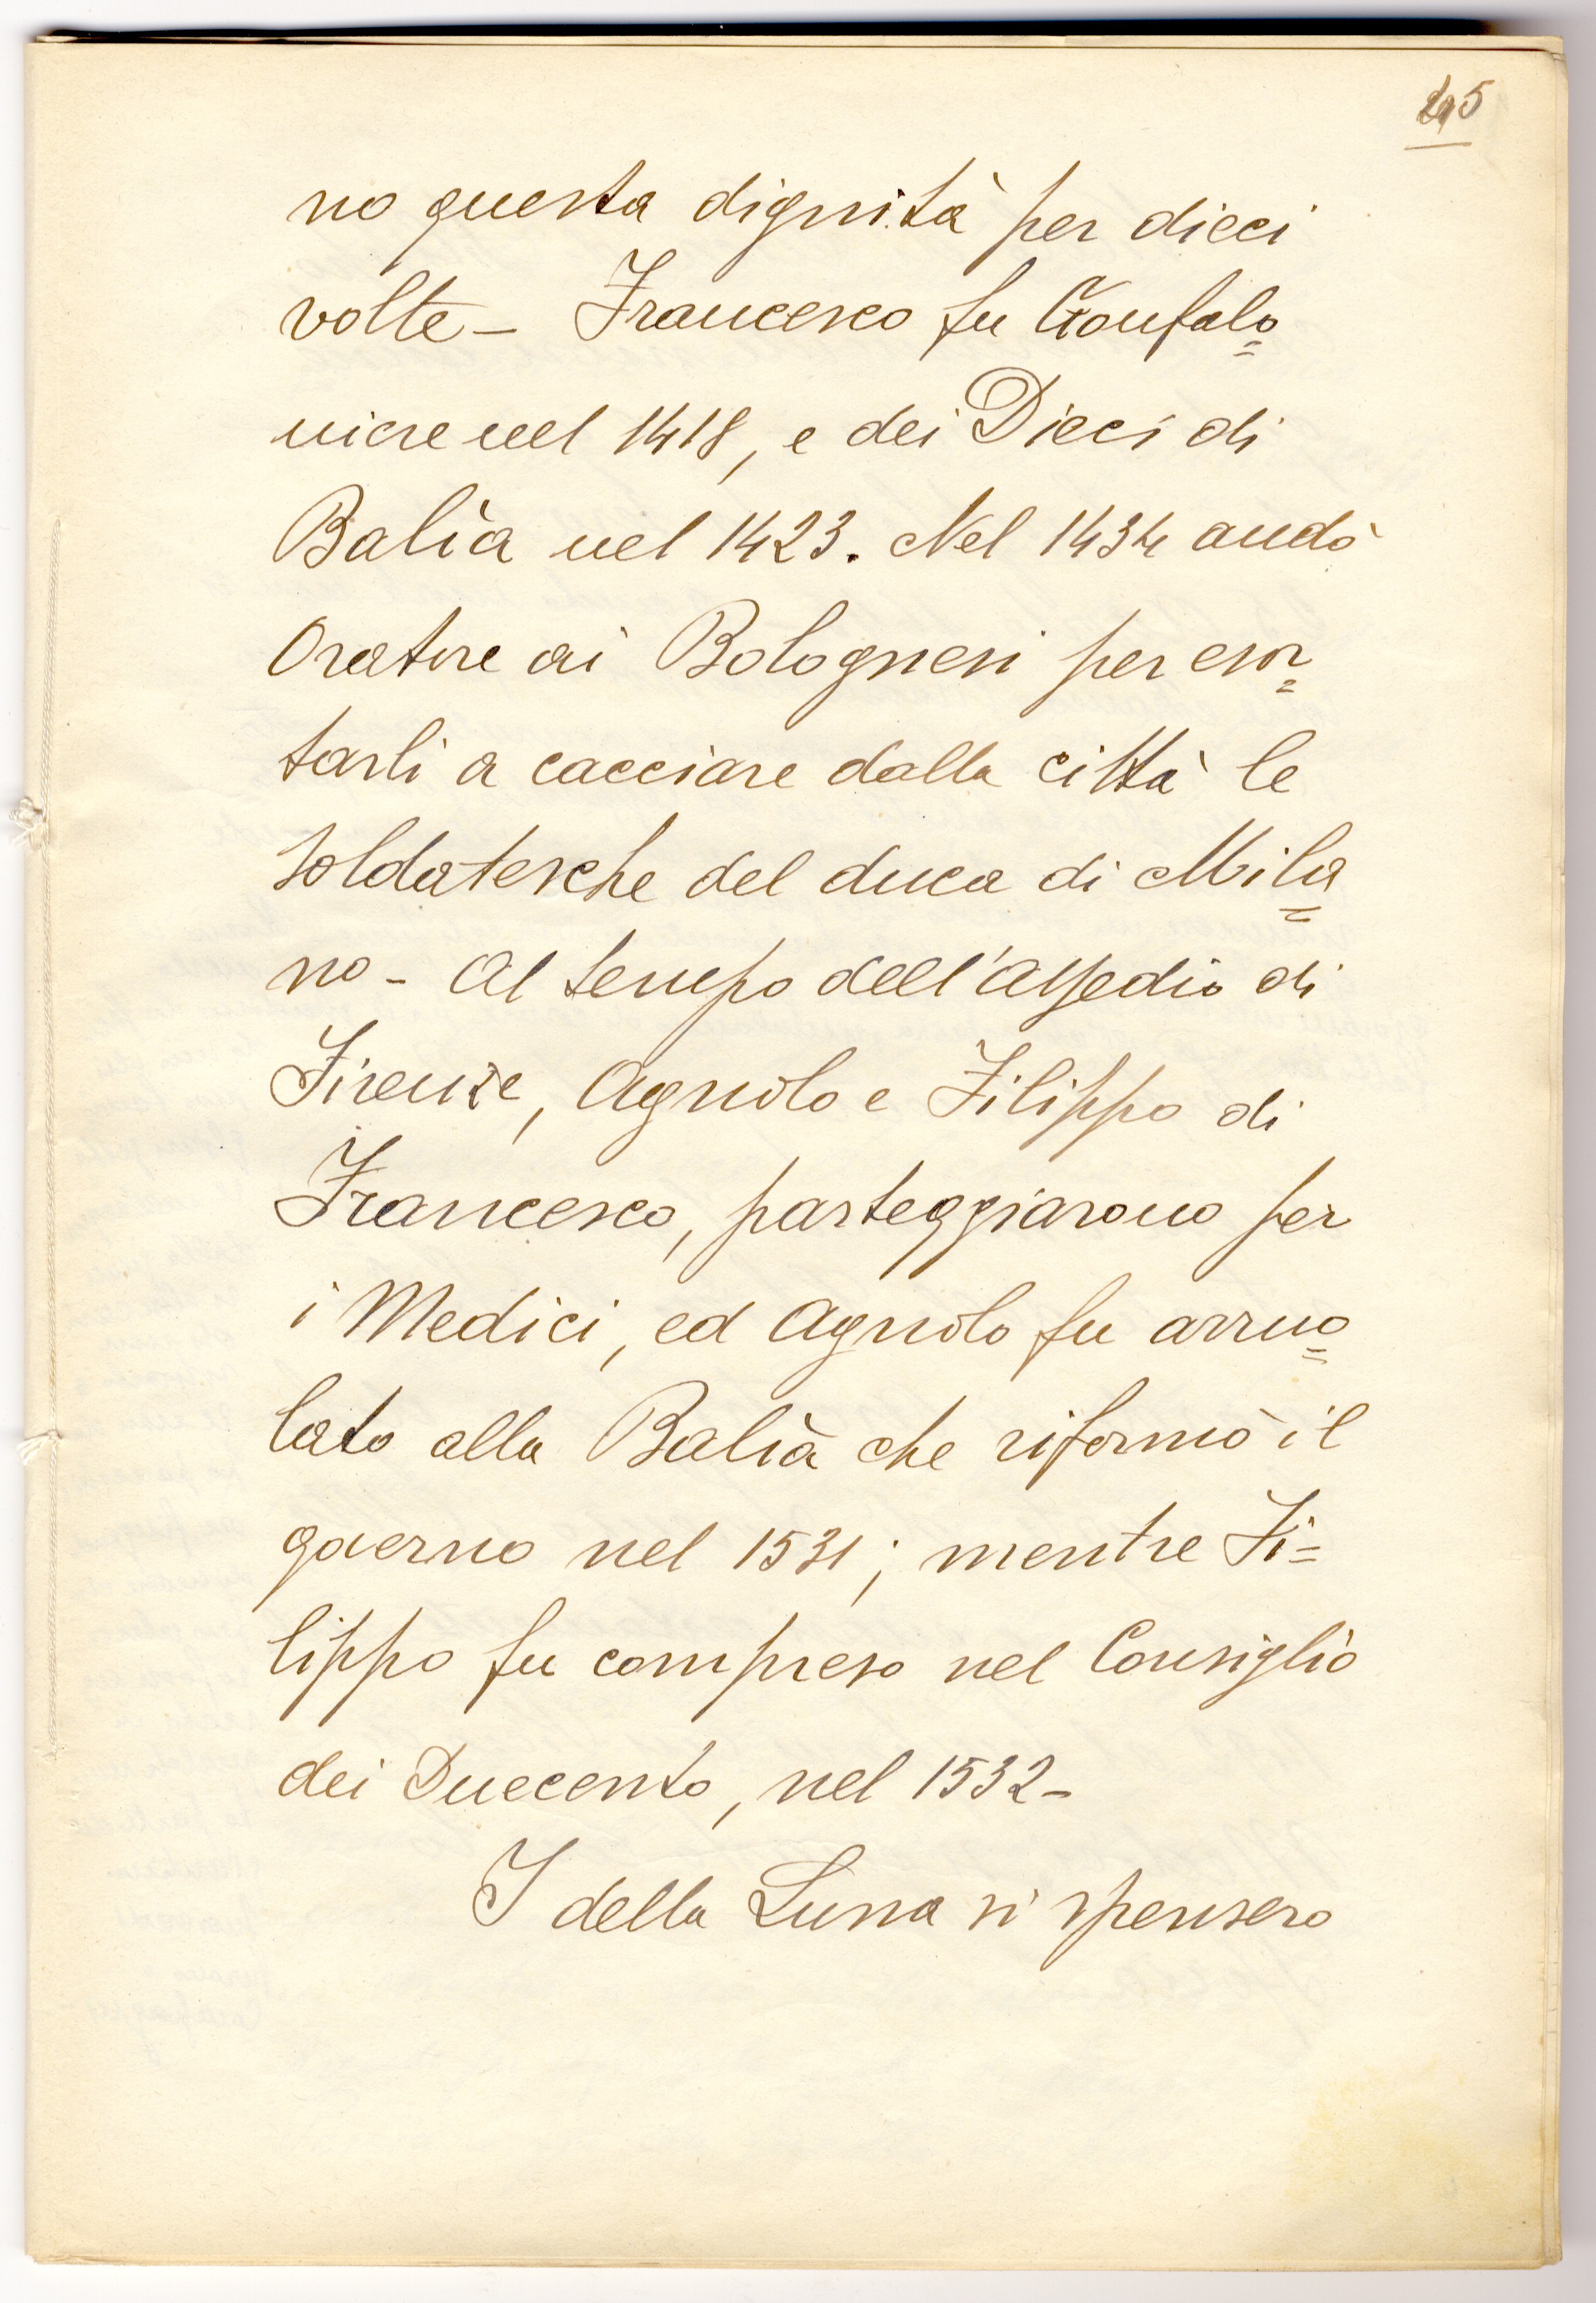 no questa dignità per dieci
volte – Francesco fu Gonfalo=
niere nel 1418, e dei Dieci di
Balìa nel 1423. Nel 1434 andò
Oratore ai Bolognesi per esor=
tarli a cacciare dalla città le
soldatesche del duca di Mila=
no – Al tempo dell'assedio di
Firenze, Agnolo e Filippo di
Francesco, parteggiarono per
i Medici, ed Agnolo fu arruo=
lato alla Balìa che riformò il
governo nel 1531; mentre Fi=
lippo fu compreso nel Consiglio
dei Duecento, nel 1532 –
I della Luna si spensero